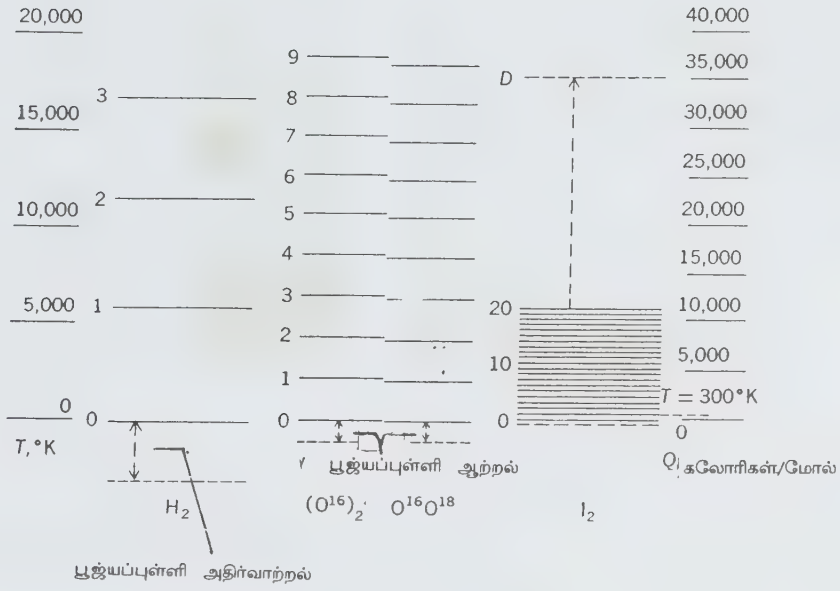 20,000
15,000
10,000
5,000
0
T, °K
3
2
1
0
H₂
பூஜ்யப்புள்ளி அதிர்வாற்றல்
9
8
7
6
5
4
3
2
1
0
பூஜ்யப்புள்ளி ஆற்றல்
(O¹⁶)₂ O¹⁶O¹⁸
D
20
10
0
I₂
40,000
35,000
30,000
25,000
20,000
15,000
10,000
5,000
T = 300°K
0
Q கலோரிகள்/மோல்